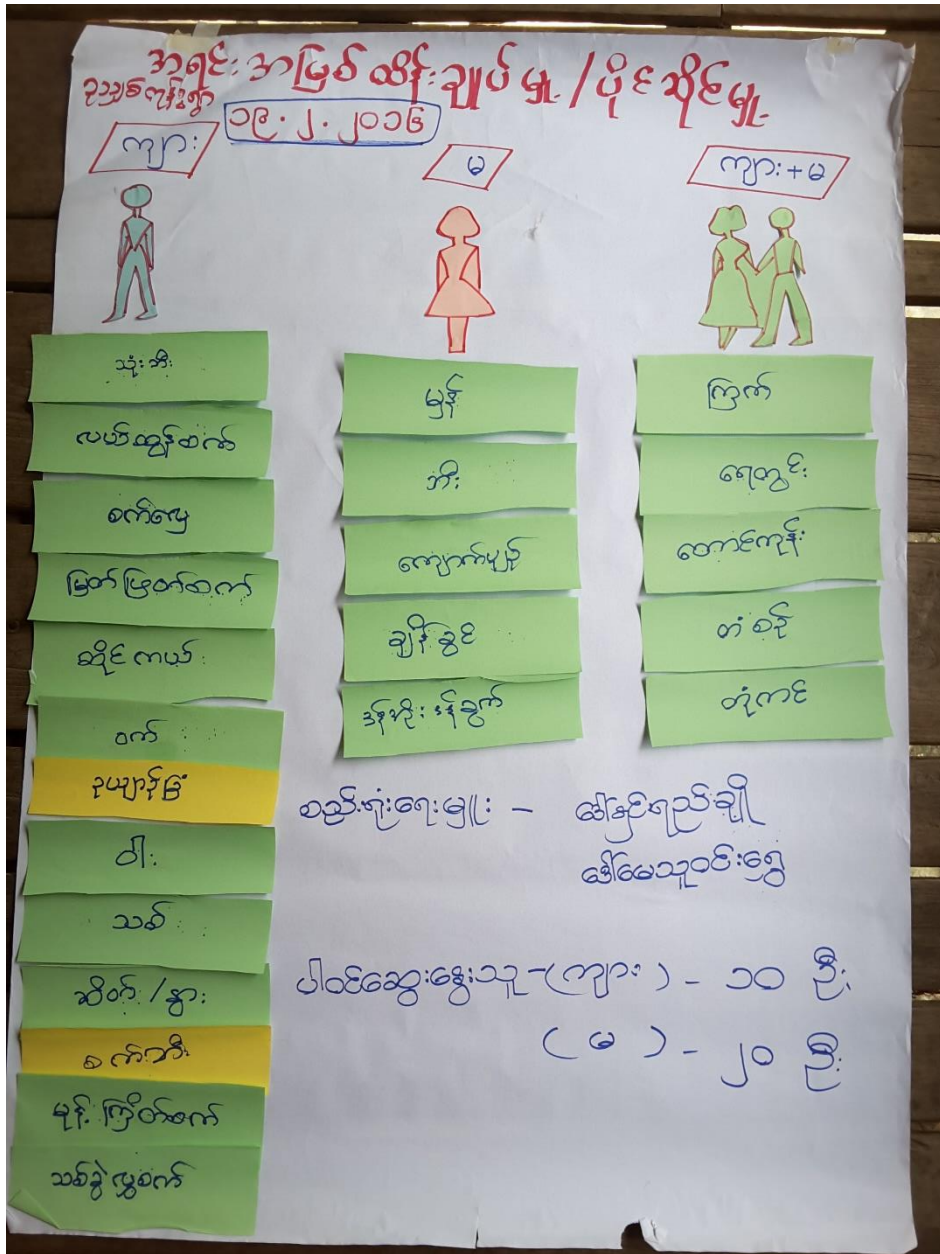 အရင်းအမြစ်ထိန်းချုပ်မှု/ပိုင်ဆိုင်မှု
၁၉.၂.၂၀၁၆
ကျား
မ
ကျား+မ
သုံးဘီး
လယ်ထွန်စက်
စက်လှေ
မြက်ဖြတ်စက်
ဆိုင်ကယ်
ဝက်
ဥယျာဉ်ခြံ
ဝါး
သစ်
ဆိတ်/နွား
စက်ဘီး
မုန့်ကြိတ်စက်
သစ်ခွဲလွှစက်
မှန်
ဘီး
ကျောက်ပျဉ်
ချိန်ခွင်
ဒန်အိုးဒန်ခွက်
ကြက်
ရေတွင်း
တောင်ကုန်း
တံစဉ်
တုံကင်
စည်းရုံးရေးမှူး - ဒေါ်ခင်ရည်ချို
ဒေါ်မေသူဝင်းရွှေ
ပါဝင်ဆွေးနွေးသူ-(ကျား) - ၁၀ ဦး
(မ) - ၂၀ ဦး